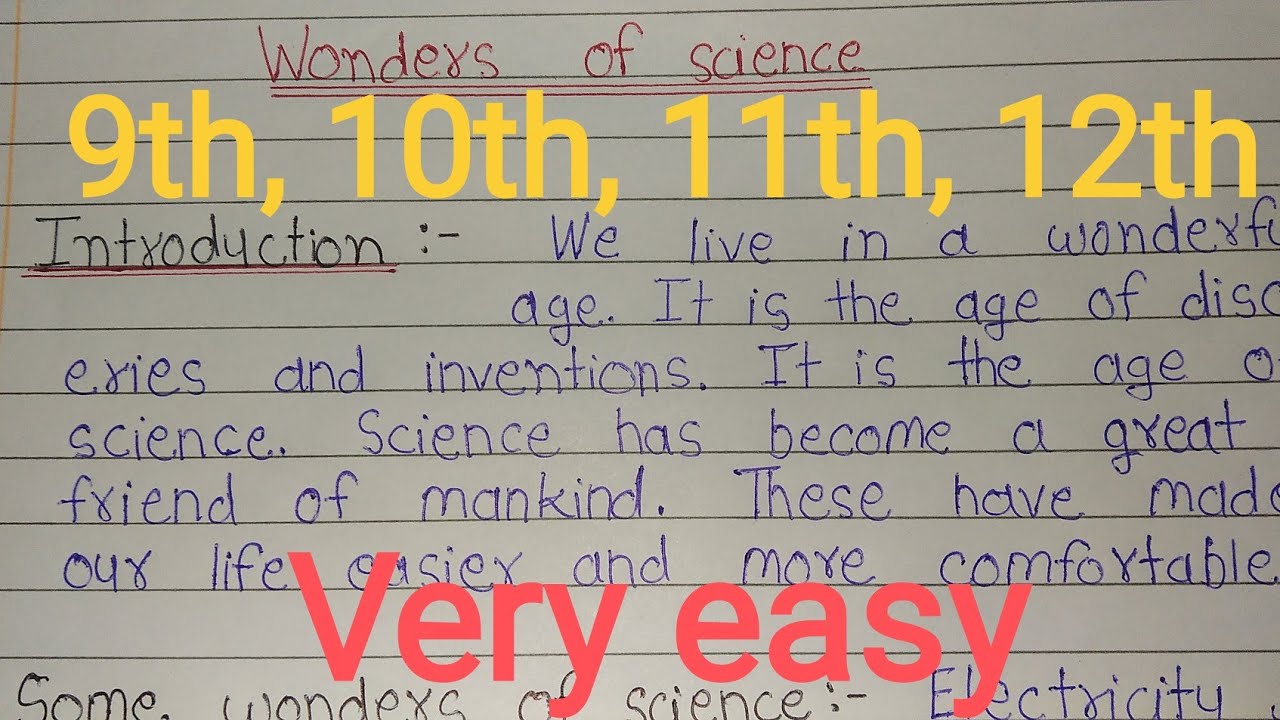 Wonders of science
9th, 10th, 11th, 12th
Introduction :- We live in a wonderfu
age. It is the age of disc
eries and inventions. It is the age o
science. Science has become a great
friend of mankind. These have made
our life easier and more comfortable
Very easy
Some wonders of science:- Electricity